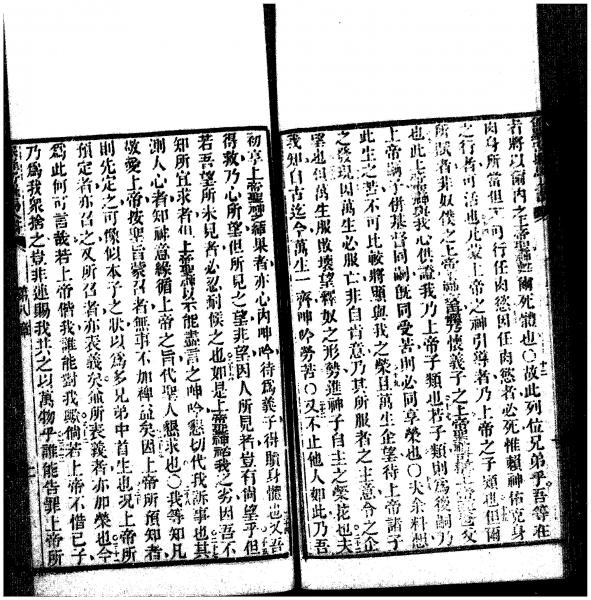 者將以爾內之上帝聖神爾死體也○故此列位兄弟乎吾等在
肉身所當但不可行任肉慾因任肉慾者必死惟賴神佑克身
之行者可活也凡蒙上帝之神引導者乃上帝之子類也但爾
所賦者非奴僕之上帝懷義子之上帝聖神父
也此上帝聖神與我心供證我乃上帝子類也若子類則爲後嗣乃
上帝嗣子併基督同嗣旣同受苦則必同享榮也○夫余料想
此主之苦不可比較將顯與我之榮且萬生企望待上帝諸子
之發現因萬生必服亡非自肯意乃其所服者之主意令之企
望也但萬生服敗壞望釋奴之形勢進神子自主之榮花也夫
我知自古迄今萬生一齊呻吟勞苦○又不止他人如此乃吾
初享上帝聖結果者亦心內呻吟待爲義子得贖身體也又吾
得救乃心所望但所見之望非望因人所見者豈有尚望乎但
若吾望所未見者必忍耐候之也如是上帝聖神祐我之劣因吾不
知所宜求者但上帝聖神以不能盡言之呻吟懇切代我訴事也其
測人心者知神意緣循上帝之旨代聖人懇求也○我等知凡
敬愛上帝按聖旨蒙召者無事不加裨益矣因上帝所預知者
則先定之可像似本子之狀以爲多兄弟中首生也況上帝所
預定者亦召之又所召者亦表義矣並所表義者亦加榮也今
爲此何可言哉若上帝偕我誰能對我歟倘若上帝不惜己子
乃爲我衆捨之豈非連賜我共之以萬物乎誰能告罪上帝所
第八章